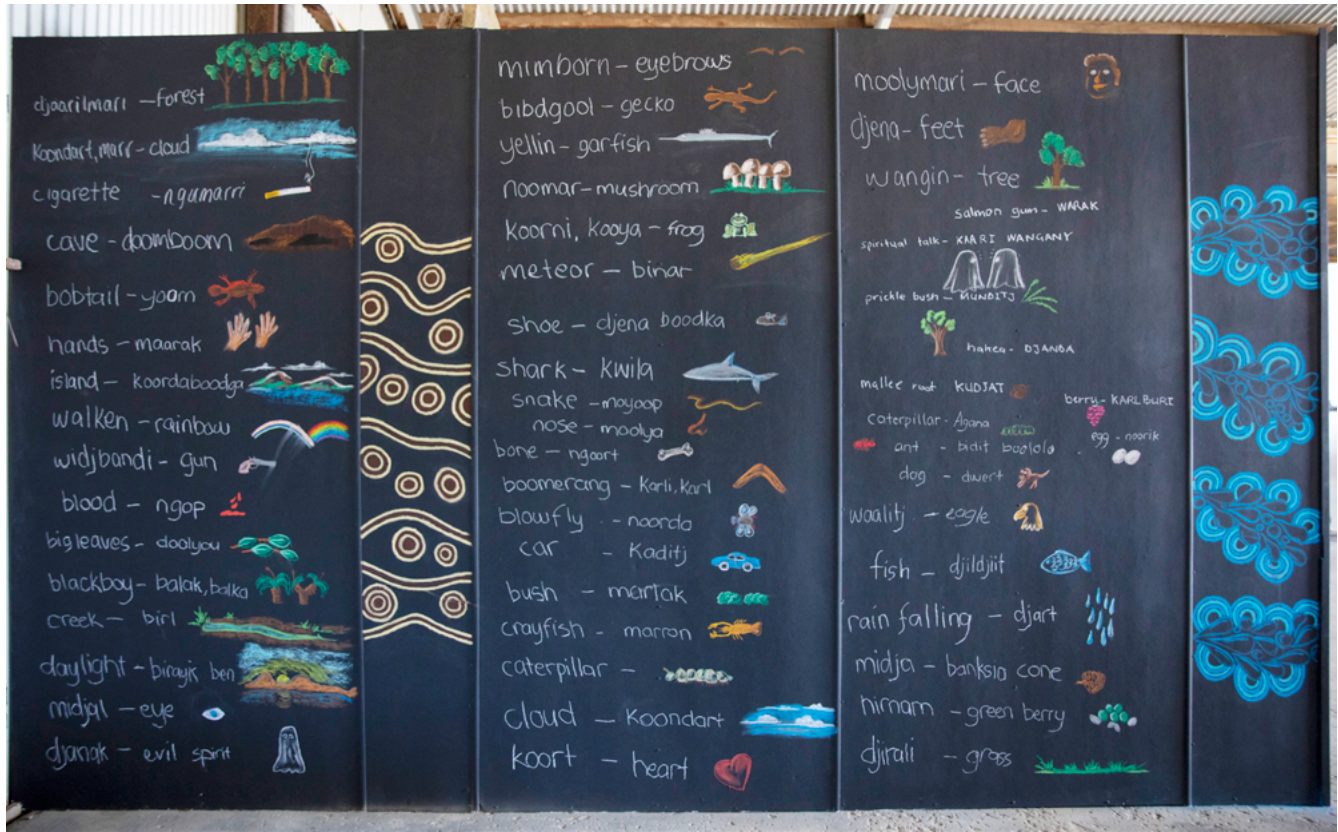 djaarilmari - forest
Koondart, marr - cloud
cigarette - ngumarri
cave - doomboom
bobtail - yoorn
hands - maarak
island - koordaboodga
walken - rainbow
widjbandi - gun
blood - ngop
big leaves - doolyou
blackboy - balak, balka
creek - birl
daylight - birayik ben
midjal - eye
djanak - evil spirit
mimborn - eyebrows
bibdgool - gecko
yellin - garfish
noomar - mushroom
koorni, kooya - frog
meteor - binar
shoe - djena boodka
shark - kwila
snake - moyoop
nose - moolya
bone - ngoort
boomerang - karli, karl
blowfly - noorda
car - Kaditj
bush - martak
crayfish - marron
caterpillar -
cloud - Koondart
koort - heart
moolymari - face
djena - feet
wangin - tree
salmon gum - WARAK
spiritual talk - KAARI WANGANY
prickle bush - MUNDITJ
hakea - DJANDA
mallee root KUDJAT
berry - KARLBURI
caterpillar - Agana
egg - noorik
ant - bidit boolola
dog - dwert
waalitj - eagle
fish - djildjiit
rain falling - djart
midja - banksia cone
nirnam - green berry
djirali - grass